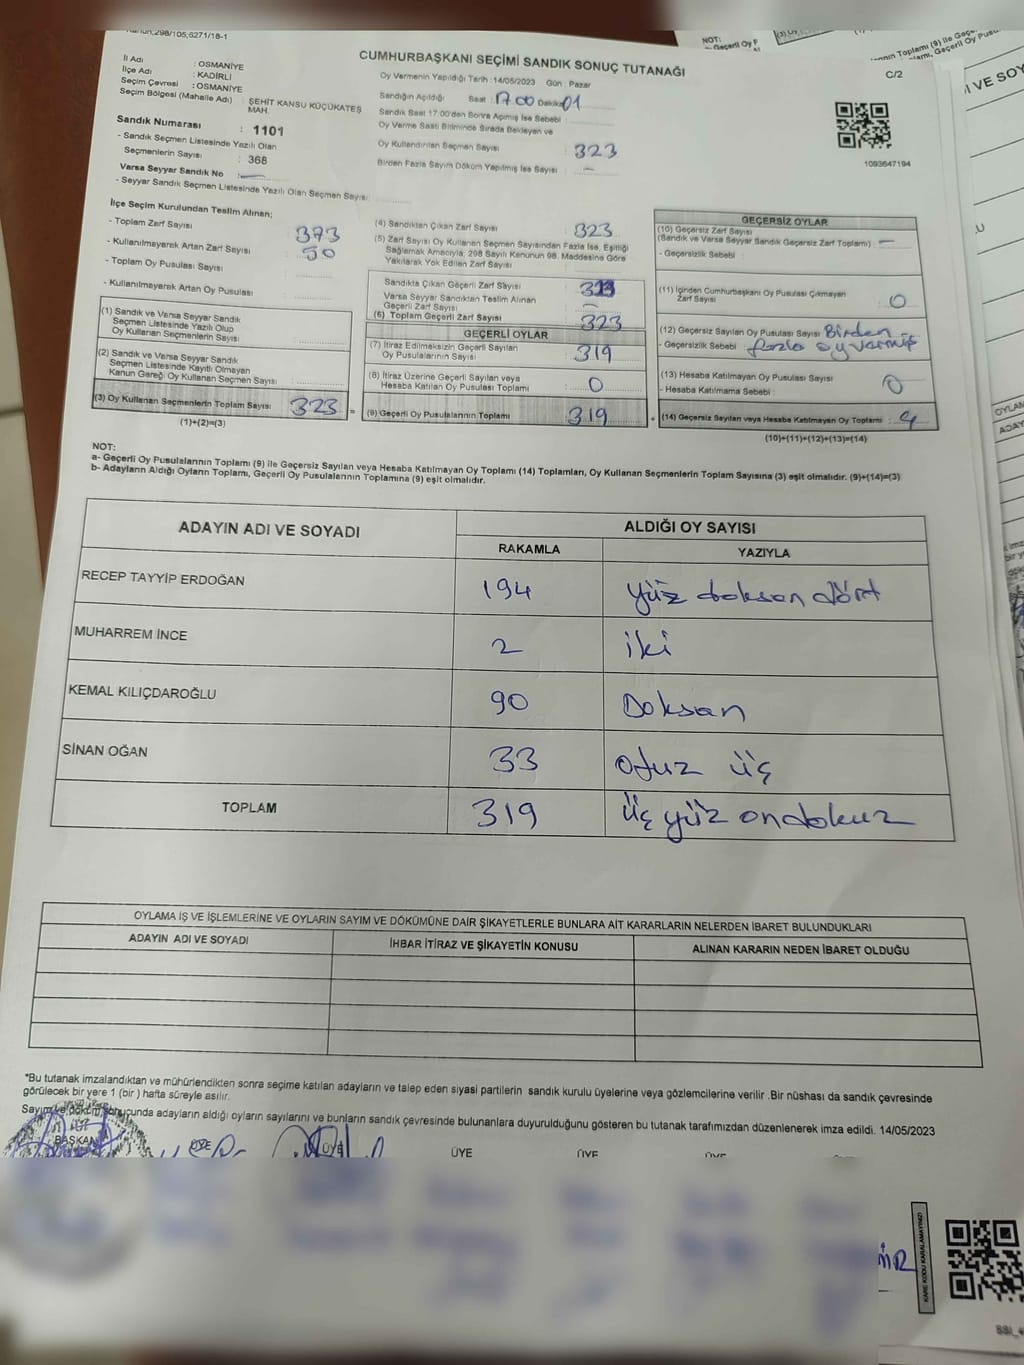 Kanun:298/105;6271/18-1
CUMHURBAŞKANI SEÇİMİ SANDIK SONUÇ TUTANAĞI
C/2
İl Adı : OSMANİYE
İlçe Adı : KADİRLİ
Seçim Çevresi : OSMANİYE
Seçim Bölgesi (Mahalle Adı) : ŞEHİT KANSU KÜÇÜKATEŞ MAH.
Sandık Numarası : 1101
- Sandık Seçmen Listesinde Yazılı Olan
Seçmenlerin Sayısı : 368
Varsa Seyyar Sandık No : —
- Seyyar Sandık Seçmen Listesinde Yazılı Olan Seçmen Sayısı:
Oy Vermenin Yapıldığı Tarih :14/05/2023 Gün : Pazar
Sandığın Açıldığı Saat : 17.00 Dakika 01
Sandık Saat 17:00'den Sonra Açılmış İse Sebebi :
Oy Verme Saati Bitiminde Sırada Bekleyen ve
Oy Kullandırılan Seçmen Sayısı : 323
Birden Fazla Sayım Döküm Yapılmış İse Sayısı : —
1093647194
İlçe Seçim Kurulundan Teslim Alınan;
- Toplam Zarf Sayısı : 373
- Kullanılmayarak Artan Zarf Sayısı : 50
- Toplam Oy Pusulası Sayısı :
- Kullanılmayarak Artan Oy Pusulası :
(1) Sandık ve Varsa Seyyar Sandık
Seçmen Listesinde Yazılı Olup
Oy Kullanan Seçmenlerin Sayısı :
(2) Sandık ve Varsa Seyyar Sandık
Seçmen Listesinde Kayıtlı Olmayan
Kanun Gereği Oy Kullanan Seçmen Sayısı :
(3) Oy Kullanan Seçmenlerin Toplam Sayısı 323 =
(1)+(2)=(3)
(4) Sandıktan Çıkan Zarf Sayısı : 323
(5) Zarf Sayısı Oy Kullanan Seçmen Sayısından Fazla İse, Eşitliği
Sağlamak Amacıyla; 298 Sayılı Kanunun 98. Maddesine Göre
Yakılarak Yok Edilen Zarf Sayısı :
Sandıkta Çıkan Geçerli Zarf Sayısı : 323
Varsa Seyyar Sandıktan Teslim Alınan
Geçerli Zarf Sayısı : —
(6) Toplam Geçerli Zarf Sayısı : 323
GEÇERLİ OYLAR
(7) İtiraz Edilmeksizin Geçerli Sayılan
Oy Pusulalarının Sayısı : 319
(8) İtiraz Üzerine Geçerli Sayılan veya
Hesaba Katılan Oy Pusulası Toplamı : 0
(9) Geçerli Oy Pusulalarının Toplamı : 319 +
GEÇERSİZ OYLAR
(10) Geçersiz Zarf Sayısı
(Sandık ve Varsa Seyyar Sandık Geçersiz Zarf Toplamı) : —
- Geçersizlik Sebebi :
(11) İçinden Cumhurbaşkanı Oy Pusulası Çıkmayan
Zarf Sayısı : 0
(12) Geçersiz Sayılan Oy Pusulası Sayısı : Birden
- Geçersizlik Sebebi : fazla oy vermiş
(13) Hesaba Katılmayan Oy Pusulası Sayısı : 0
- Hesaba Katılmama Sebebi :
(14) Geçersiz Sayılan veya Hesaba Katılmayan Oy Toplamı : 4
(10)+(11)+(12)+(13)=(14)
NOT:
a- Geçerli Oy Pusulalarının Toplamı (9) ile Geçersiz Sayılan veya Hesaba Katılmayan Oy Toplamı (14) Toplamları, Oy Kullanan Seçmenlerin Toplam Sayısına (3) eşit olmalıdır. (9)+(14)=(3)
b- Adayların Aldığı Oyların Toplamı, Geçerli Oy Pusulalarının Toplamına (9) eşit olmalıdır.
ADAYIN ADI VE SOYADI ALDIĞI OY SAYISI
RAKAMLA YAZIYLA
RECEP TAYYİP ERDOĞAN 194 yüz doksan dört
MUHARREM İNCE 2 iki
KEMAL KILIÇDAROĞLU 90 Doksan
SİNAN OĞAN 33 otuz üç
TOPLAM 319 üç yüz ondokuz
OYLAMA İŞ VE İŞLEMLERİNE VE OYLARIN SAYIM VE DÖKÜMÜNE DAİR ŞİKAYETLERLE BUNLARA AİT KARARLARIN NELERDEN İBARET BULUNDUKLARI
ADAYIN ADI VE SOYADI İHBAR İTİRAZ VE ŞİKAYETİN KONUSU ALINAN KARARIN NEDEN İBARET OLDUĞU
*Bu tutanak imzalandıktan ve mühürlendikten sonra seçime katılan adayların ve talep eden siyasi partilerin sandık kurulu üyelerine veya gözlemcilerine verilir .Bir nüshası da sandık çevresinde
görülecek bir yere 1 (bir ) hafta süreyle asılır.
Sayım ve döküm sonucunda adayların aldığı oyların sayılarını ve bunların sandık çevresinde bulunanlara duyurulduğunu gösteren bu tutanak tarafımızdan düzenlenerek imza edildi. 14/05/2023
BAŞKAN ÜYE ÜYE ÜYE ÜYE ÜYE
KARE KODU KARALAMAYINIZ!